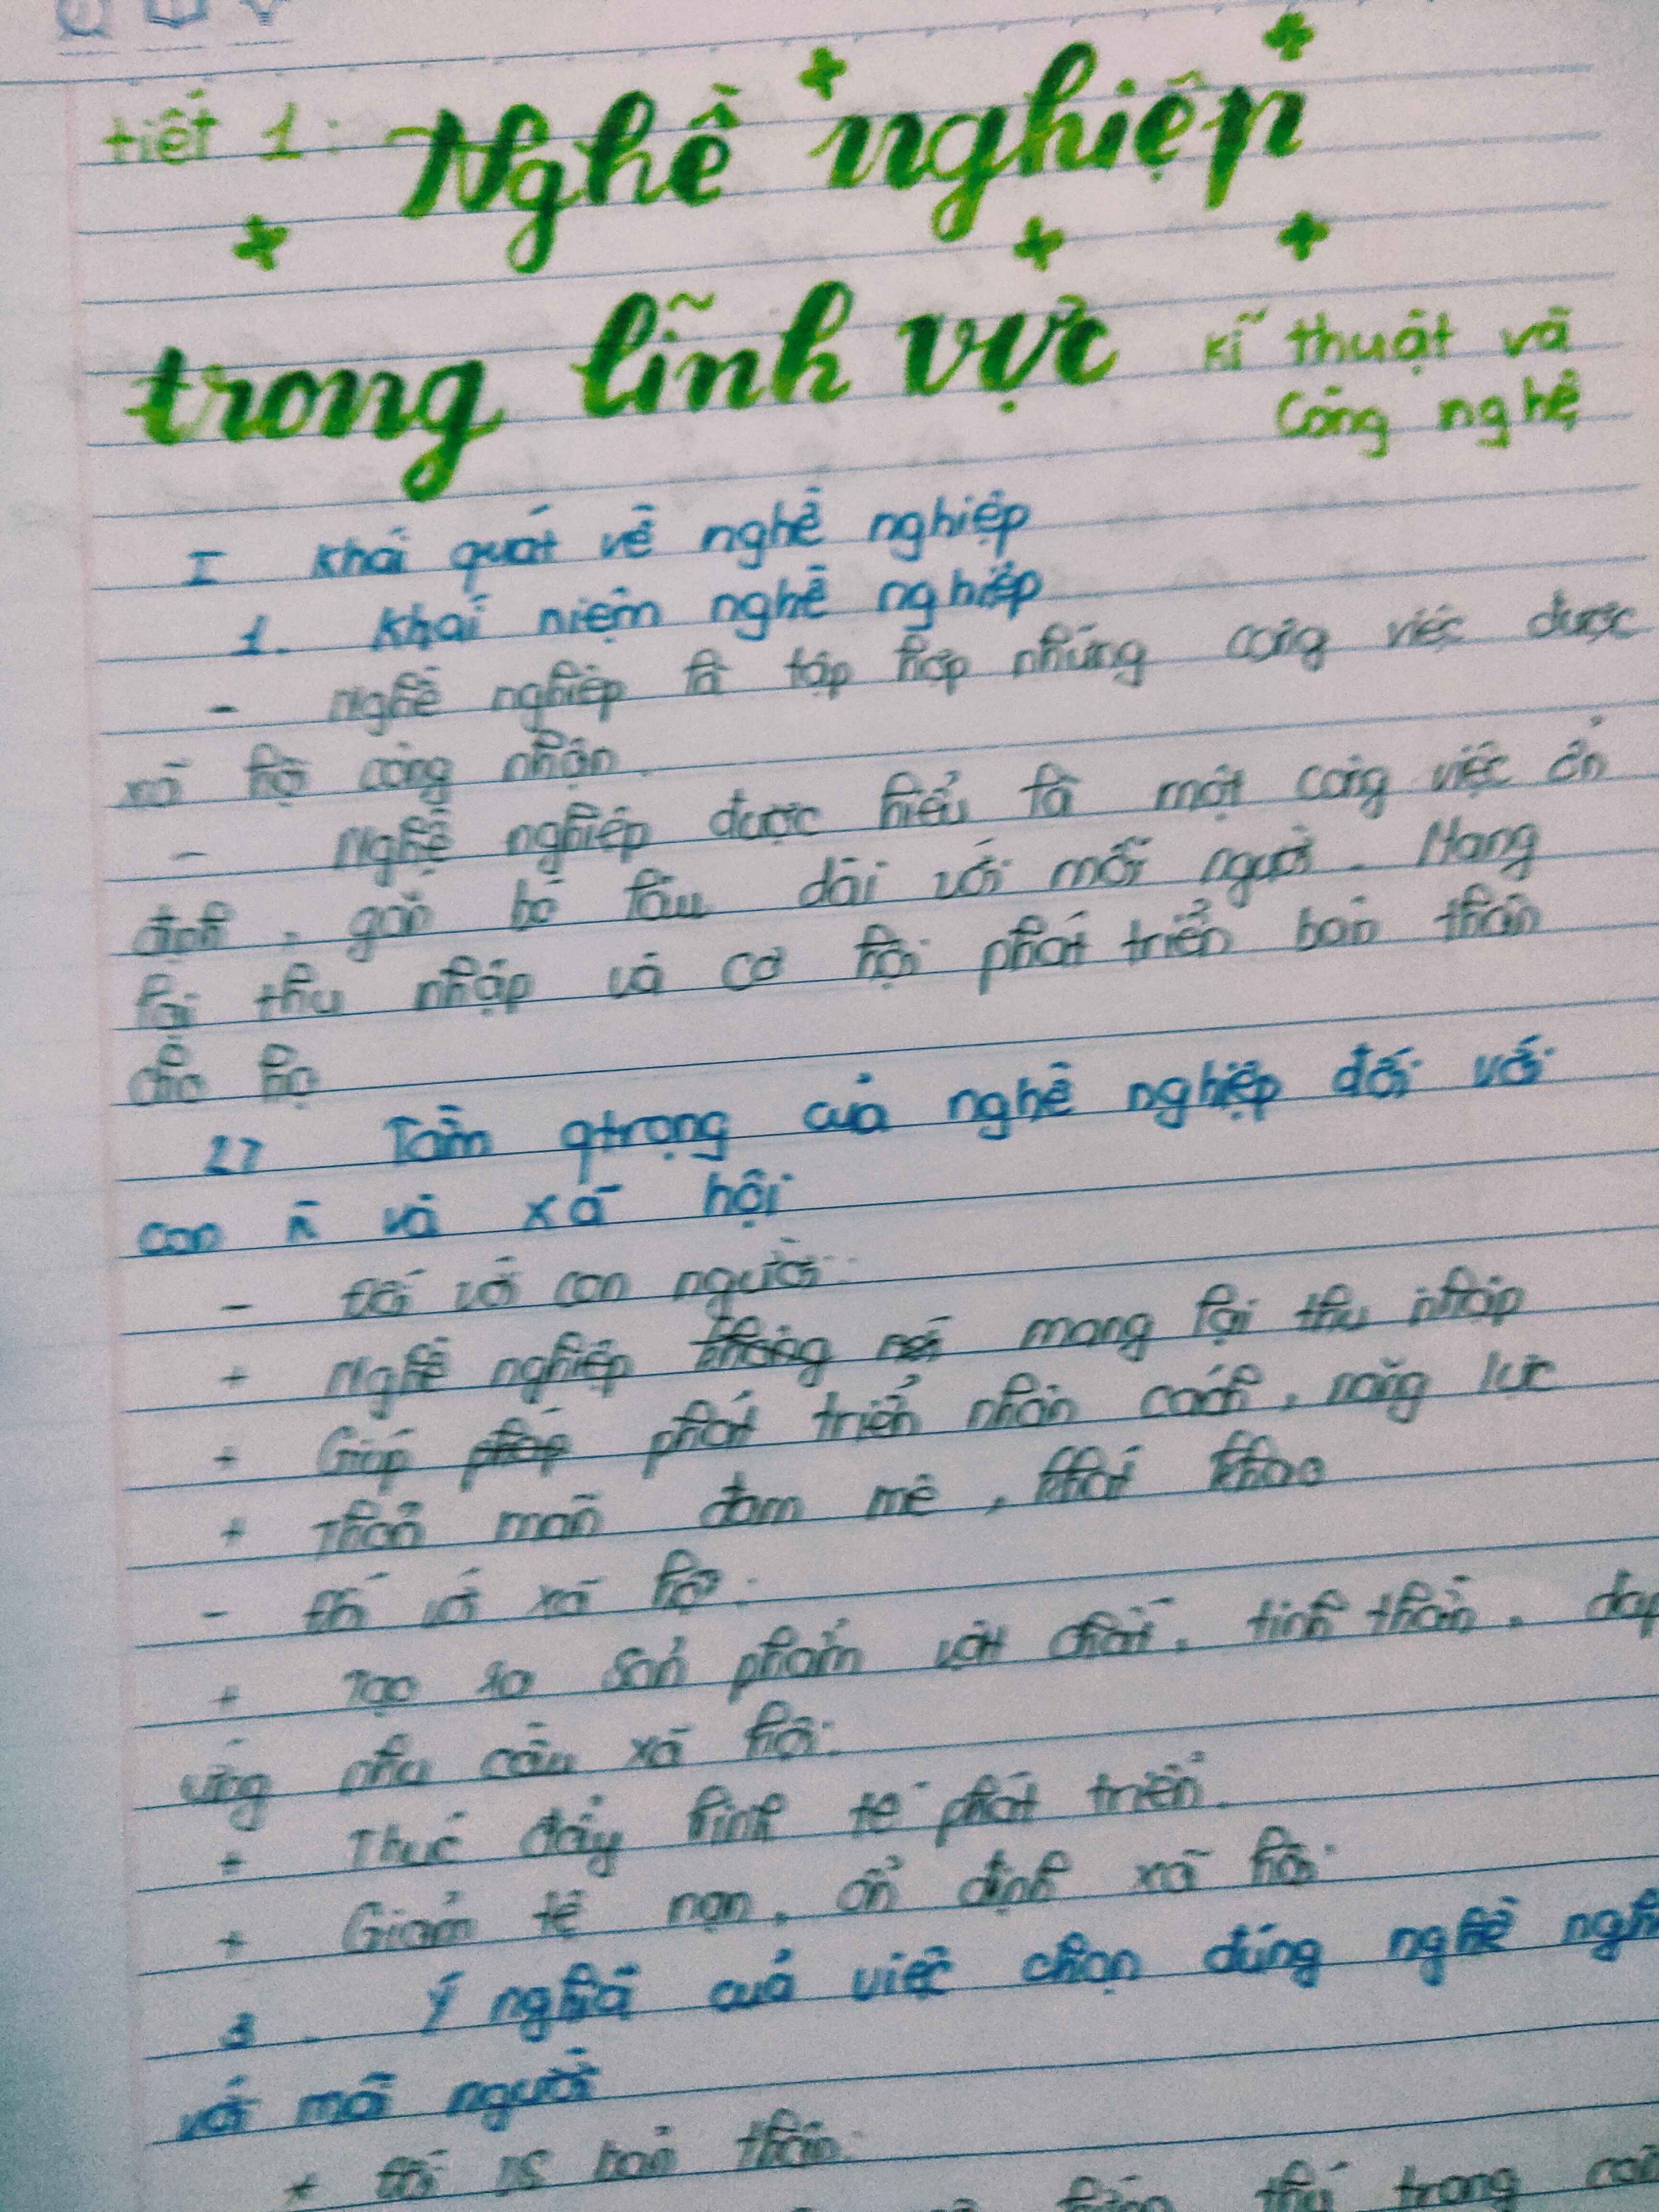 tiết 1: Nghề nghiệp
trong lĩnh vực kĩ thuật và
công nghệ
I Khái quát về nghề nghiệp
1. Khái niệm nghề nghiệp
- Nghề nghiệp là tập hợp những công việc được
xã hội công nhận.
- Nghề nghiệp được hiểu là một công việc ổn
định, gắn bó lâu dài với mỗi người. Mang
lại thu nhập và cơ hội phát triển bản thân
cho họ
2, Tầm qtrọng của nghề nghiệp đối với
con ñ và xã hội
- Đối với con người:
+ Nghề nghiệp mang lại thu nhập
+ Giúp phát triển nhân cách, năng lực
+ Thoả mãn đam mê, khát khao
- Đối với xã hội:
+ Tạo ra sản phẩm vật chất, tinh thần, đáp
ứng nhu cầu xã hội.
+ Thúc đẩy kinh tế phát triển.
+ Giảm tệ nạn, ổn định xã hội.
3. Ý nghĩa của việc chọn đúng nghề
với mỗi người
+ Đối bản thân:
thú trong